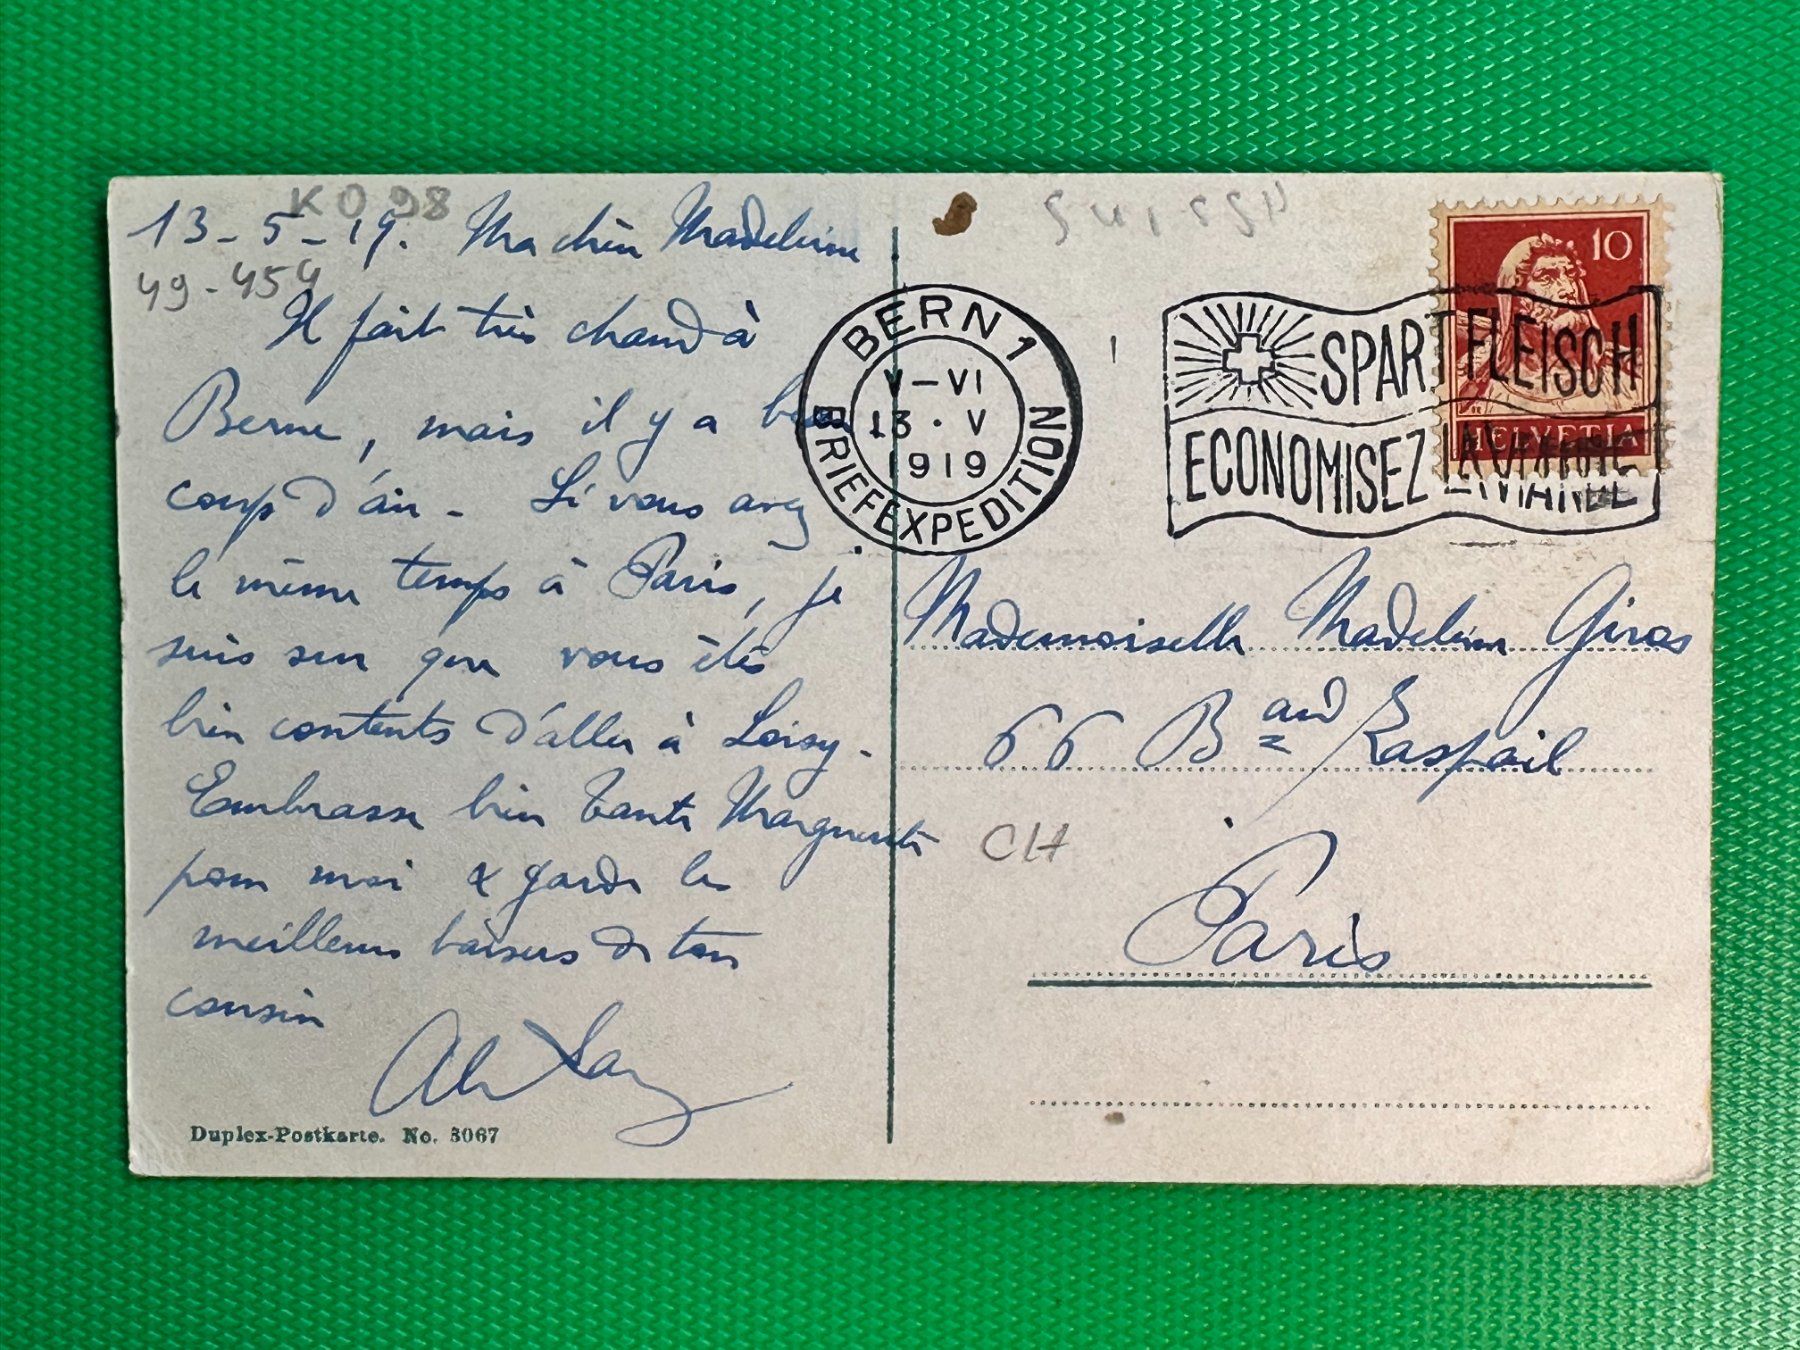 KO 98
13-5-19. Ma chère Madeleine
49-454
Il fait très chaud à
Berne, mais il y a beau
coup d'air - Si vous avez
le même temps à Paris, je
suis sur que vous êtes
bien contents d'aller à Loisy -
Embrasse bien tante Marguerite
pour moi & garde les
meilleurs baisers de ton
cousin
Duplex-Postkarte. No. 3067
BERN 1
V-VI
13·V
1919
BRIEFEXPEDITION
SPART FLEISCH
ECONOMISEZ LA VIANDE
10
HELVETIA
Mademoiselle Madeleine Giros
66 Bard Raspail
CH
Paris